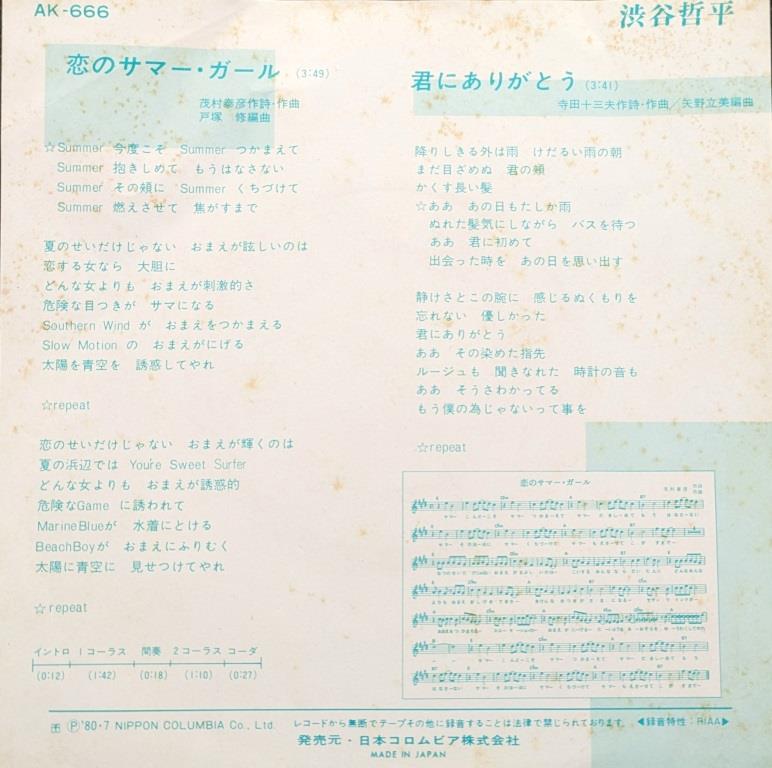 AK-666
渋谷哲平
恋のサマー・ガール (3:49)
茂村泰彦作詩・作曲
戸塚 修編曲
☆Summer 今度こそ Summer つかまえて
Summer 抱きしめて もうはなさない
Summer その頬に Summer くちづけて
Summer 燃えさせて 焦がすまで
夏のせいだけじゃない おまえが眩しいのは
恋する女なら 大胆に
どんな女よりも おまえが刺激的さ
危険な目つきが サマになる
Southern Wind が おまえをつかまえる
Slow Motion の おまえがにげる
太陽を青空を 誘惑してやれ
☆repeat
恋のせいだけじゃない おまえが輝くのは
夏の浜辺では You're Sweet Surfer
どんな女よりも おまえが誘惑的
危険なGame に誘われて
MarineBlueが 水着にとける
BeachBoyが おまえにふりむく
太陽に青空に 見せつけてやれ
☆repeat
イントロ 1コーラス 間奏 2コーラス コーダ
(0:12) (1:42) (0:18) (1:10) (0:27)
君にありがとう (3:41)
寺田十三夫作詩・作曲／矢野立美編曲
降りしきる外は雨 けだるい雨の朝
まだ目ざめぬ 君の頬
かくす長い髪
☆ああ あの日もたしか雨
ぬれた髪気にしながら バスを待つ
ああ 君に初めて
出会った時を あの日を思い出す
静けさとこの腕に 感じるぬくもりを
忘れない 優しかった
君にありがとう
ああ その染めた指先
ルージュも 聞きなれた 時計の音も
ああ そうさわかってる
もう僕の為じゃないって事を
☆repeat
恋のサマー・ガール
Ⓟ'80・7 NIPPON COLUMBIA Co., Ltd. レコードから無断でテープその他に録音することは法律で禁じられております。 ◀録音特性：RIAA▶
発売元・日本コロムビア株式会社
MADE IN JAPAN